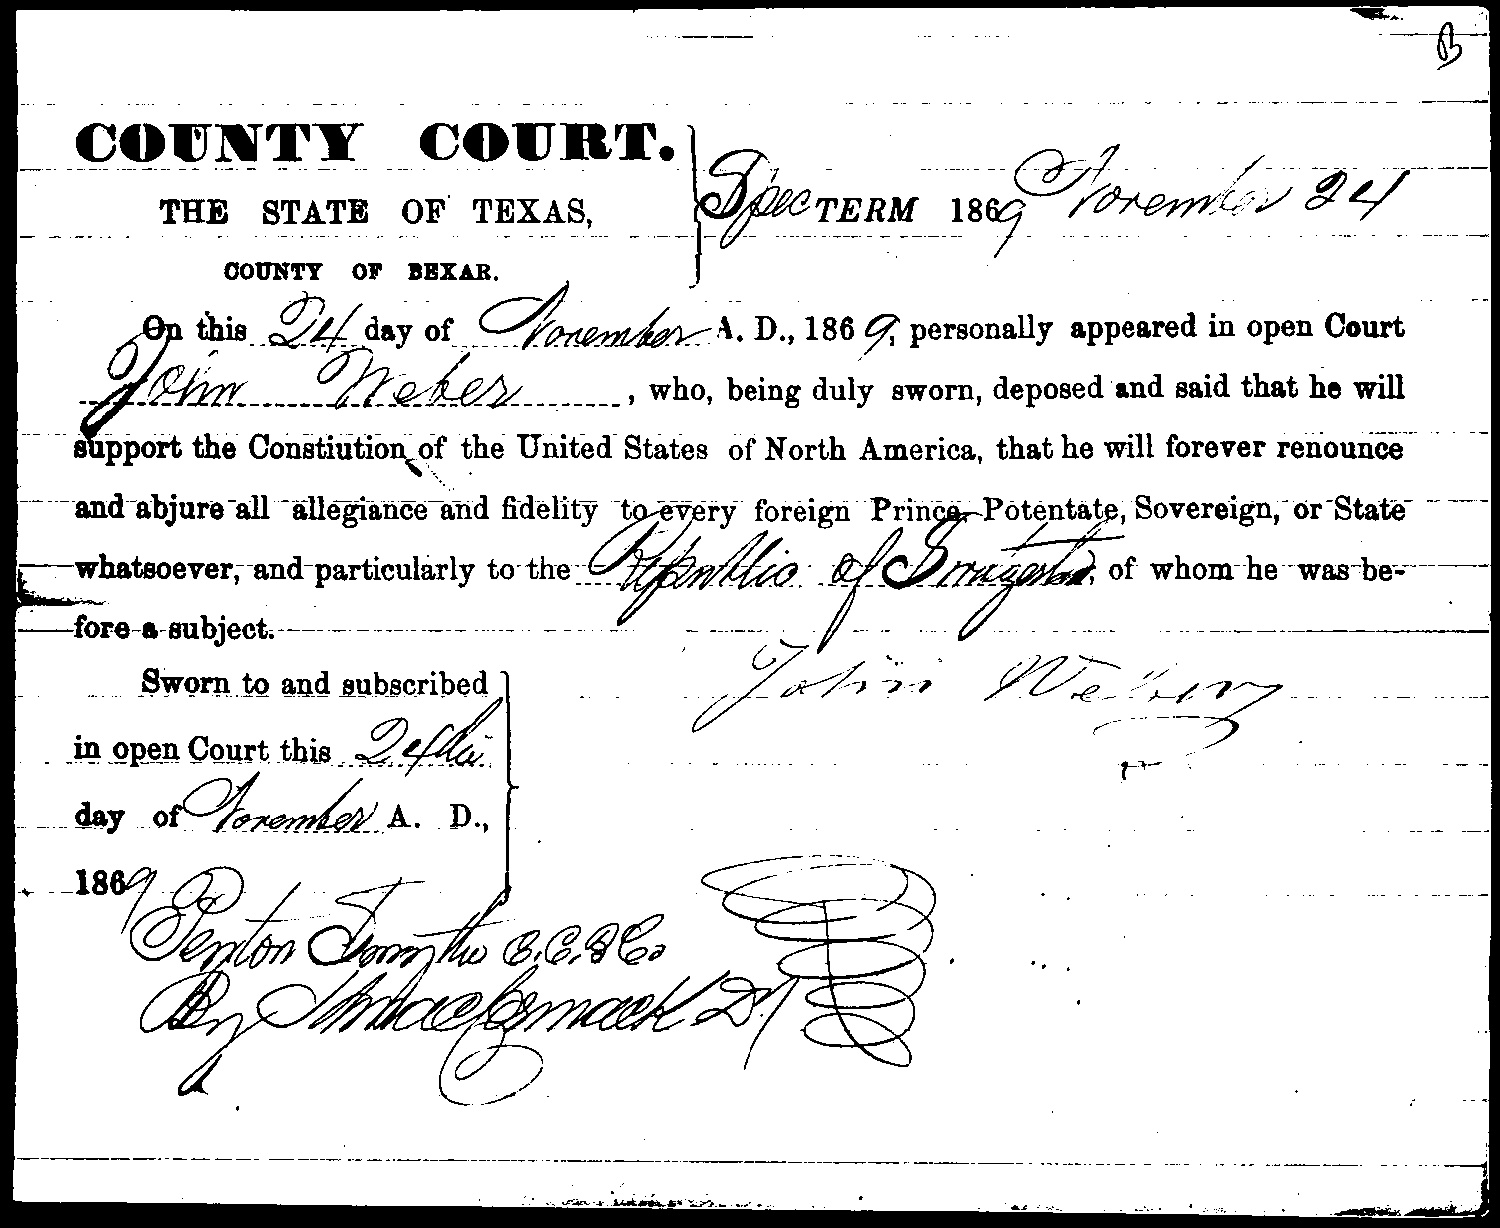 B
COUNTY COURT.
THE STATE OF TEXAS,
COUNTY OF BEXAR.
Spec TERM 1869 November 24
On this 24 day of November A. D., 1869, personally appeared in open Court
John Weber, who, being duly sworn, deposed and said that he will
support the Constiution of the United States of North America, that he will forever renounce
and abjure all allegiance and fidelity to every foreign Prince, Potentate, Sovereign, or State
whatsoever, and particularly to the Republic of, of whom he was be-
fore a subject.
John Weber
Sworn to and subscribed
in open Court this 24th
day of November A. D.,
1869
Penton Smythe C.C.B.Co.
By